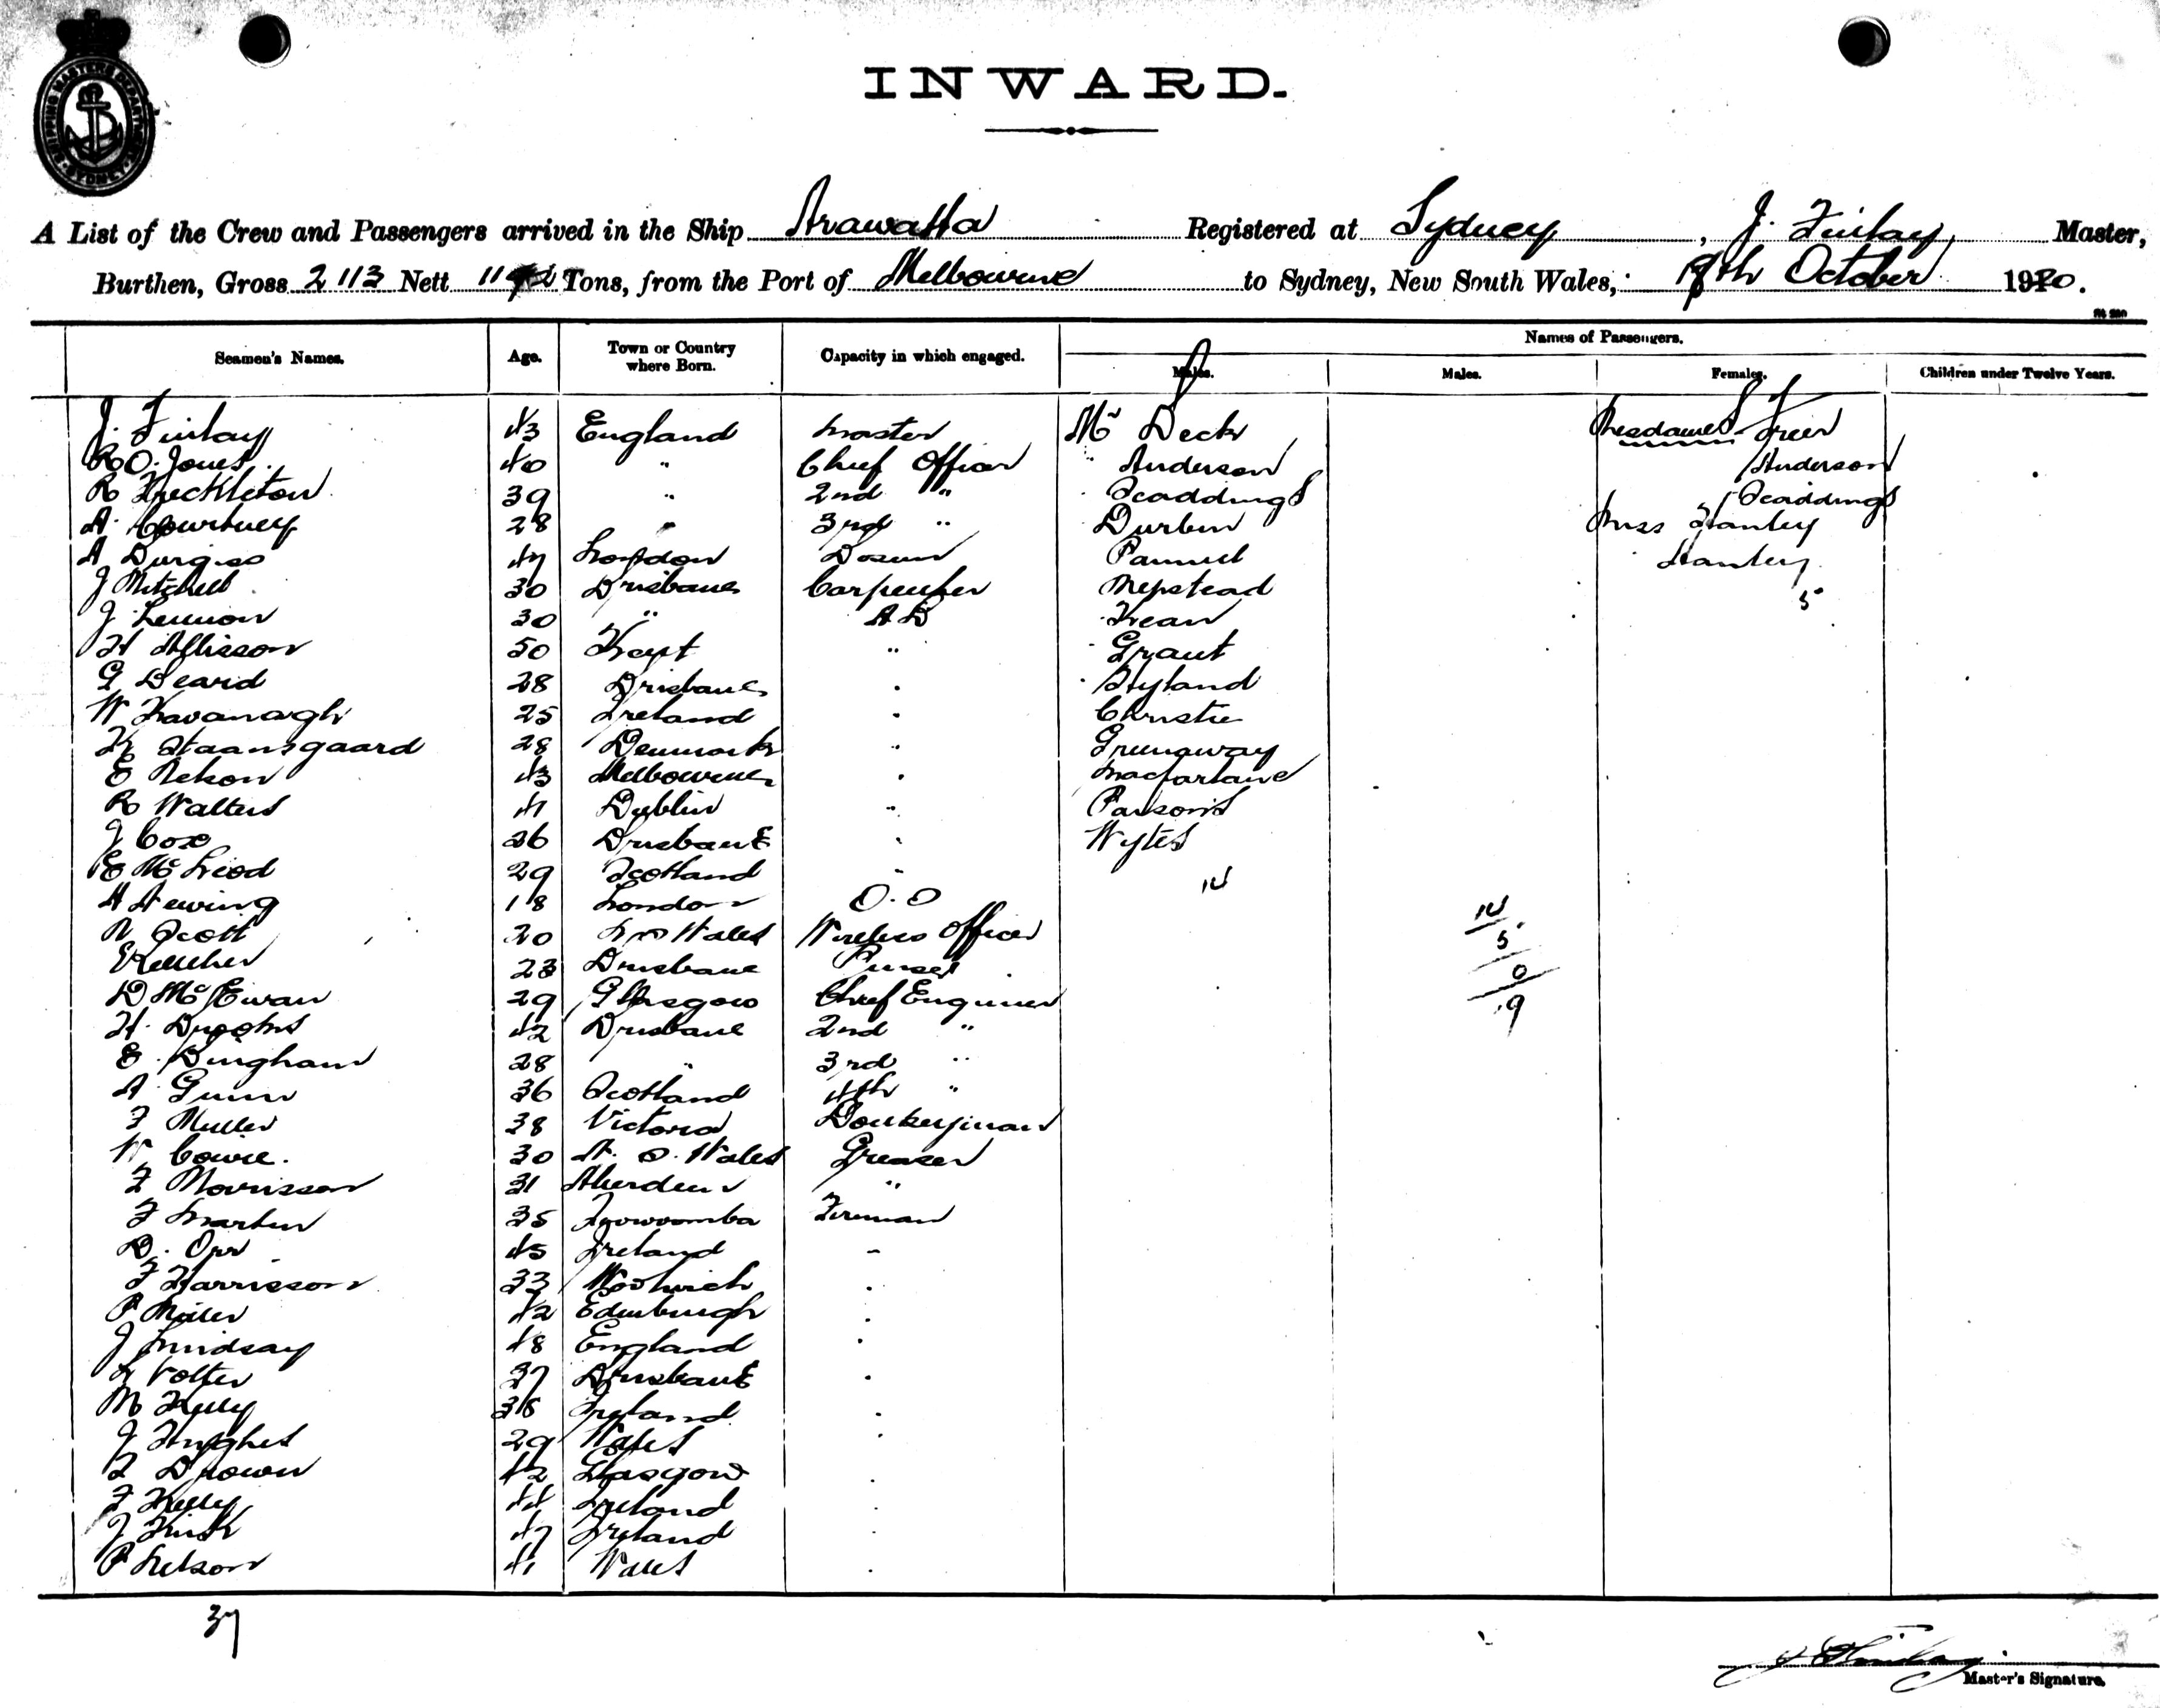 SHIPPING MASTER'S DEPARTMENT SYDNEY
INWARD.
A List of the Crew and Passengers arrived in the Ship Arawatta Registered at Sydney, J. Finlay Master,
Burthen, Gross 2113 Nett Tons, from the Port of Melbourne to Sydney, New South Wales, October 1920.
Seamen's Names. Age. Town or Country where Born. Capacity in which engaged. Names of Passengers.
Males. Males. Females. Children under Twelve Years.
J. Finlay 43 England Master Mr Beck Mesdames Freer
R O. Jones 40 " Chief Officer " Anderson Anderson
R Freckleton 39 " 2nd " Scaddings Scaddings
A. Courtney 28 " 3rd " Durbin Miss
A Burgiss 47 London Bosun Stanley
J Mitchell 30 Brisbane Carpenter Mepstead 5
J Lennon 30 " AB Kean
H Allisson 50 Kent " Grant
G Beard 28 Brisbane . Hyland
W Kavanagh 25 Ireland . Christie
K Haansgaard 28 Denmark " Greenaway
E Nelson 43 Melbourne . Macfarlane
R Walters 41 Dublin " Parsons
J Cox 26 Brisbane . Wytes
E McLeod 29 Scotland " 14
A Newing 18 London O.S
N Scott 20 N S Wales Wireless Officer 14
E Kelleher 23 Brisbane Purser 5
D McEwan 29 Glasgow Chief Engineer 0
H. 42 Brisbane 2nd " 19
E. Bingham 28 " 3rd "
A. Gunn 36 Scotland 4th "
F Muller 38 Victoria Donkeyman
W Cowie. 30 N. S. Wales Greaser
F Morrisson 31 Aberdeen "
F Martin 35 Toowoomba Fireman
D. Orr 45 Ireland -
F Harrisson 33 Woolwich .
P Miller 42 Edinburgh .
J Lindsay 48 England .
Volter 37 Brisbane .
M Kelly Ireland .
J Hughes 29 Wales .
F Brown 42 Glasgow .
F Kelly 44 Ireland .
J Kirk 47 Ireland .
P Nelson 41 Wales .
37
J Finlay
Master's Signature.